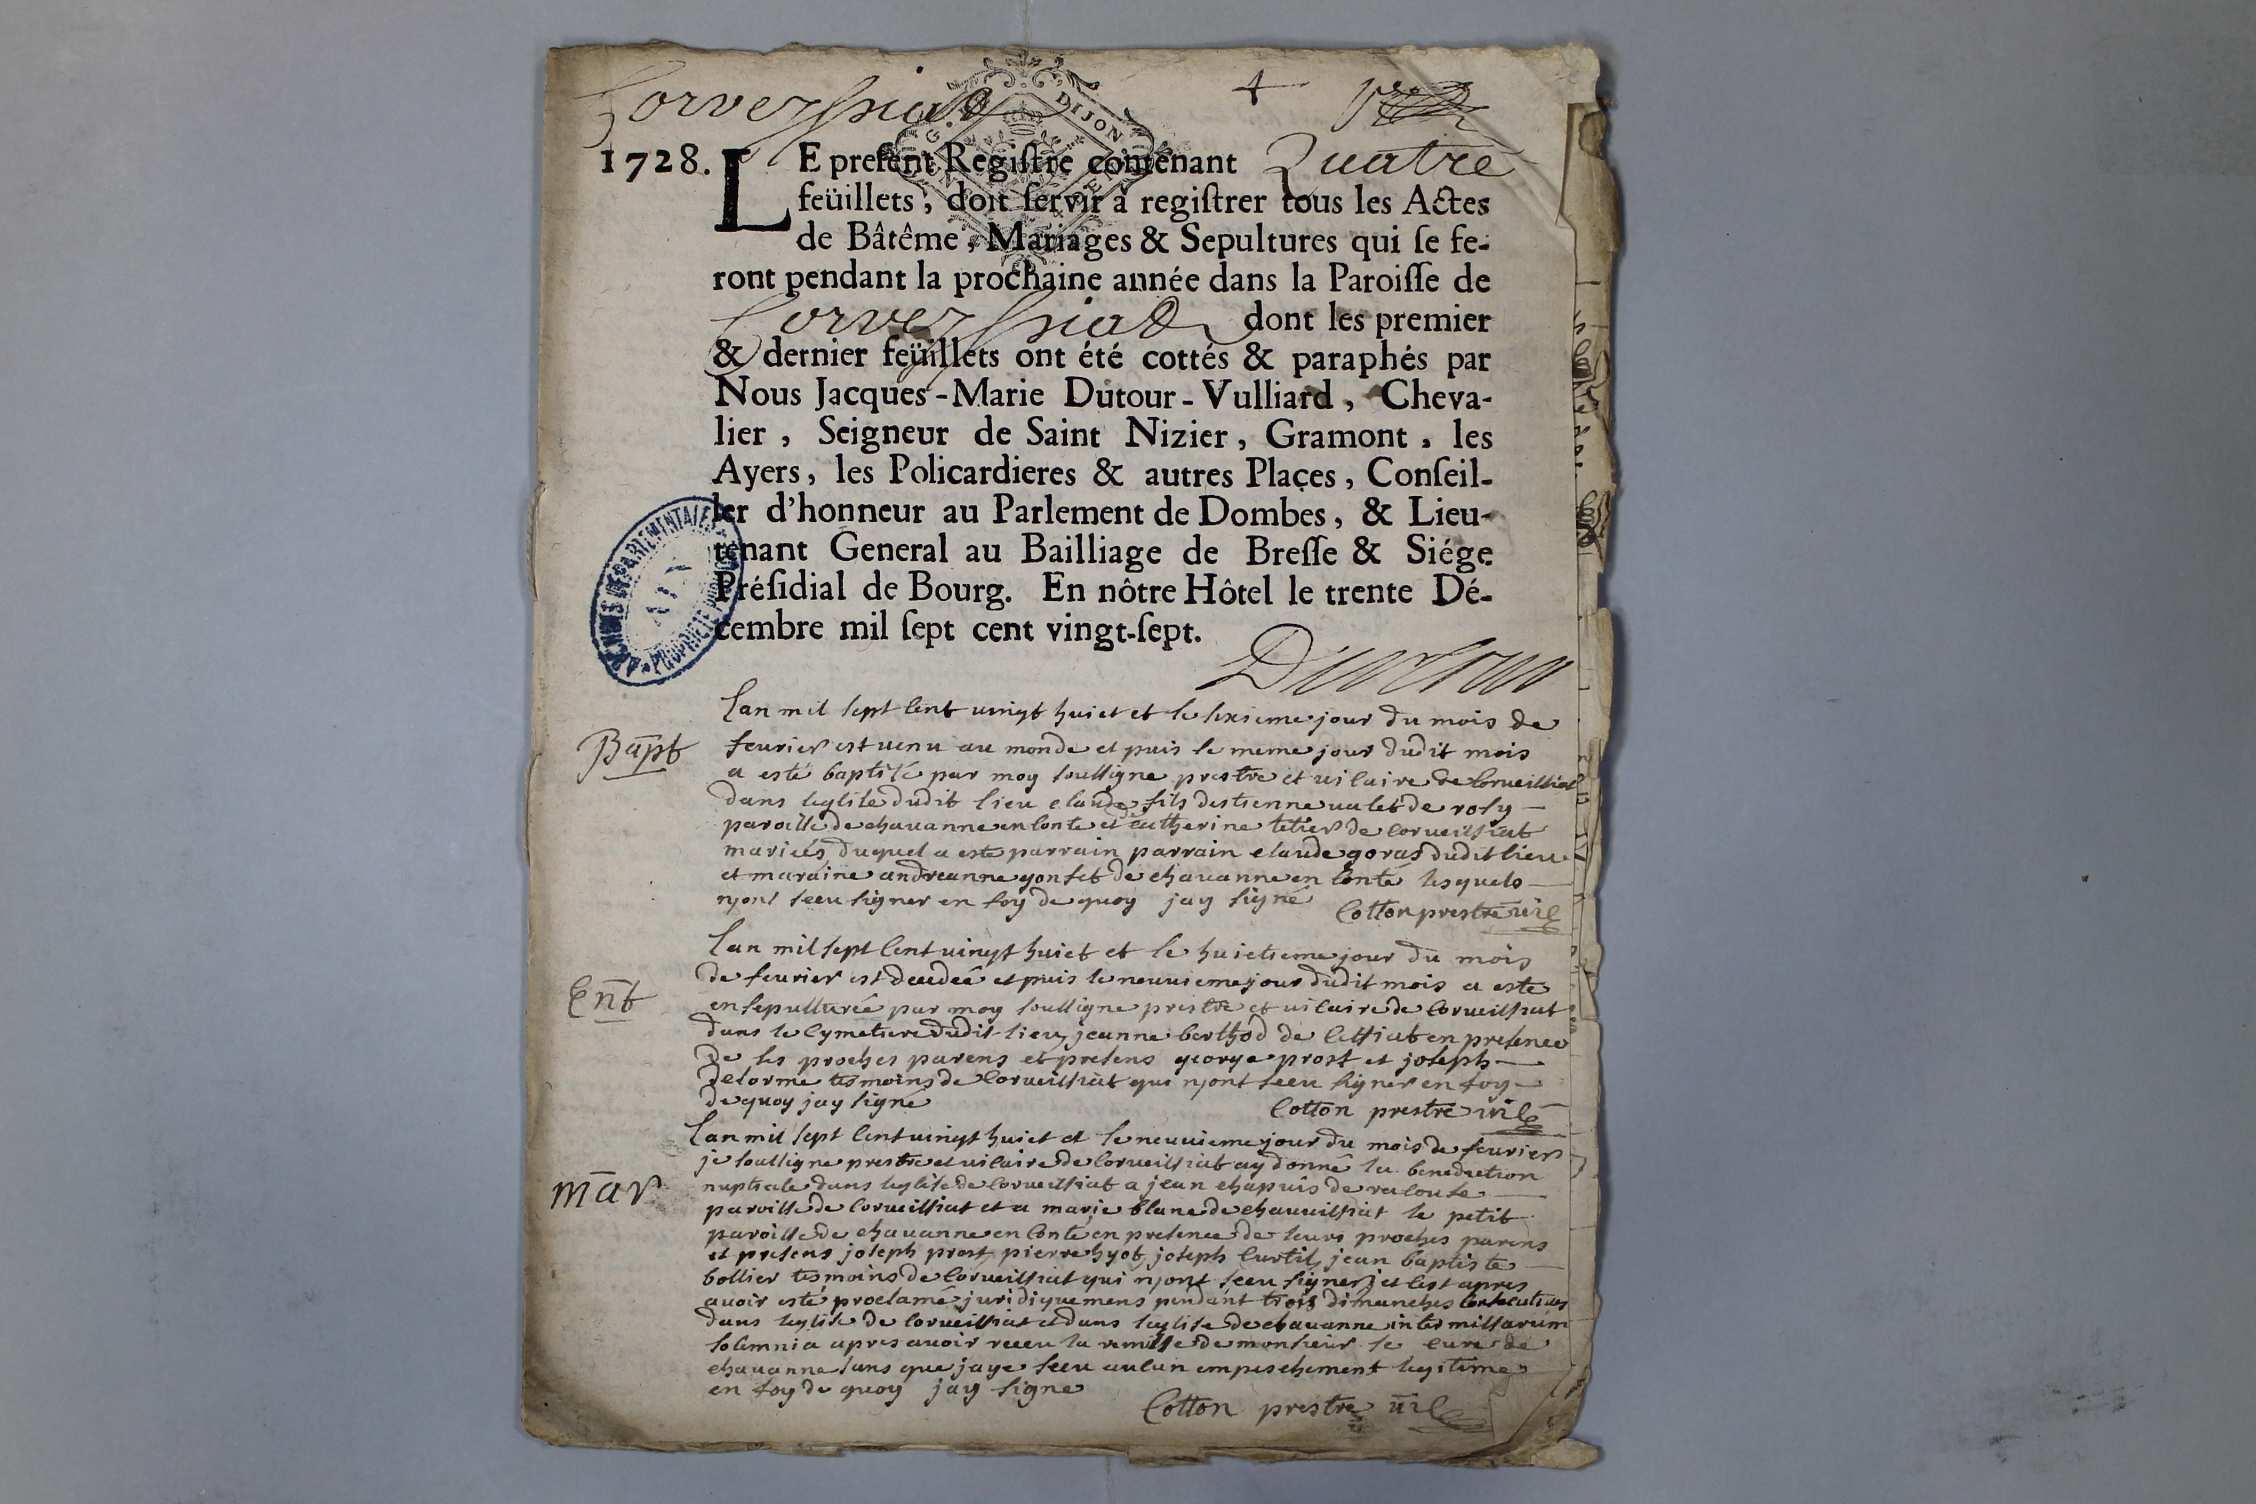 Corveyssiat
4
DIJON
1728. LE preſent Regiſtre contenant Quatre
feüillets, doit ſervir à regiſtrer tous les Actes
de Bâtême, Mariages & Sepultures qui ſe fe-
ront pendant la prochaine année dans la Paroiſſe de
Corveyssiat dont les premier
& dernier feüillets ont été cottés & paraphés par
Nous Jacques-Marie Dutour-Vulliard, Cheva-
lier, Seigneur de Saint Nizier, Gramont, les
Ayers, les Policardieres & autres Places, Conſeil-
ler d'honneur au Parlement de Dombes, & Lieu-
tenant General au Bailliage de Breſſe & Siége
Préſidial de Bourg. En nôtre Hôtel le trente Dé-
cembre mil ſept cent vingt-ſept.
ARCHIVES DEPARTEMENTALES AIN PROPRIETE PUBLIQUE
Dutour
Lan mil sept cent vingt huict et le sixieme jour du mois de
Bapt fevrier est venu au monde et puis le meme jour dudit mois
a esté baptisé par moy soussigne prestre et vicaire de Corveissiat
dans leglise dudit lieu claude fils destienne valet de rosy
paroisse de chavanne en Conte et de catherine tetier de Corveissiat
mariés, duquel a este parrain parrain claude goras dudit lieu
et maraine andreanne gonset de chavanne en Conté lesquels
njont sceu signer en foy de quoy jay signé Cotton prestre vic
Lan mil sept Cent vingt huict et le huictieme jour du mois
Ent de fevrier est decedeé et puis le neuvieme jour dudit mois a este
ensepultureé par moy soussigne prestre et vicaire de Corveissiat
dans le Cymetiere dudit lieu jeanne berthod de Cessiat en presence
de ses proches parens et presens george prost et joseph
delorme tesmoins de Corveissiat qui njont sceu signer en foy
de quoy jay signé Cotton prestre vic
Lan mil sept Cent vingt huict et le neuvieme jour du mois de fevrier
je soussigne prestre et vicaire de Corveissiat ay donné la benediction
mar nuptiale dans leglise de Corveissiat a jean chapuis de racouse
paroisse de Corveissiat et a marie blanc de chavuissiat le petit
paroisse de chavanne en Conte en presence de leurs proches parens
et presens joseph prost pierre hyot joseph Curtil jean baptiste
bollier tesmoins de Corveissiat qui njont sceu signer et cest apres
avoir esté proclamé juridiquemens pendant trois dimanches consecutives
dans leglise de Corveissiat et dans leglise de chavanne inter missarum
solemnia apres avoir receu la remisse de monsieur le curé de
chavanne sans que jaye sceu aucun empeschement legitime
en foy de quoy jay signe Cotton prestre vic